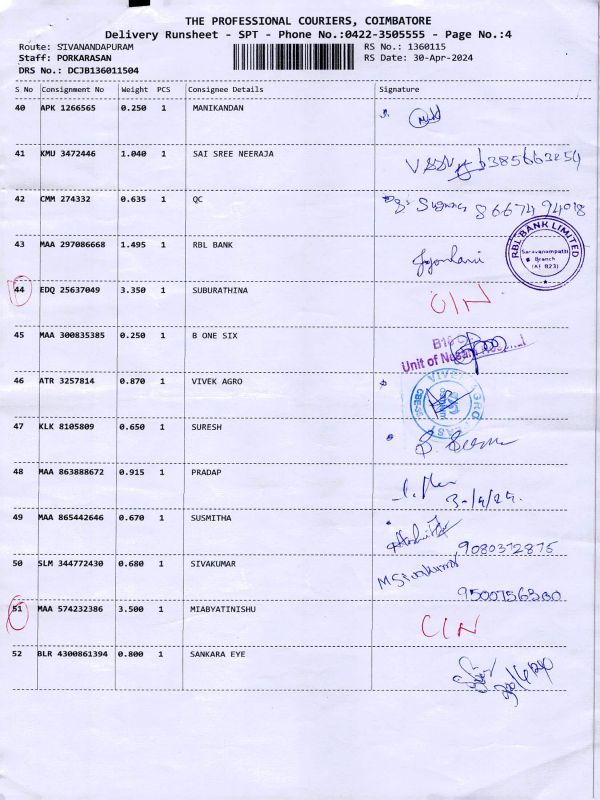 THE PROFESSIONAL COURIERS, COIMBATORE
Delivery Runsheet - SPT - Phone No.:0422-3505555 - Page No.:4
Route: SIVANANDAPURAM RS No.: 1360115
Staff: PORKARASAN RS Date: 30-Apr-2024
DRS No.: DCJB136011504
S No Consignment No Weight PCS Consignee Details Signature
40 APK 1266565 0.250 1 MANIKANDAN
41 KMU 3472446 1.040 1 SAI SREE NEERAJA 6385663254
42 CMM 274332 0.635 1 QC 86674 94018
43 MAA 297086668 1.495 1 RBL BANK
RBL BANK LIMITED
Saravanampatti
Branch
(AF 823)
44 EDQ 25637049 3.350 1 SUBURATHINA CIN
45 MAA 300835385 0.250 1 B ONE SIX
Unit of
46 ATR 3257814 0.870 1 VIVEK AGRO
47 KLK 8105809 0.650 1 SURESH
48 MAA 863888672 0.915 1 PRADAP
49 MAA 865442646 0.670 1 SUSMITHA 9080372875
50 SLM 344772430 0.680 1 SIVAKUMAR M Sivakumar
9500756300
51 MAA 574232386 3.500 1 MIABYATINISHU CIN
52 BLR 4300861394 0.800 1 SANKARA EYE